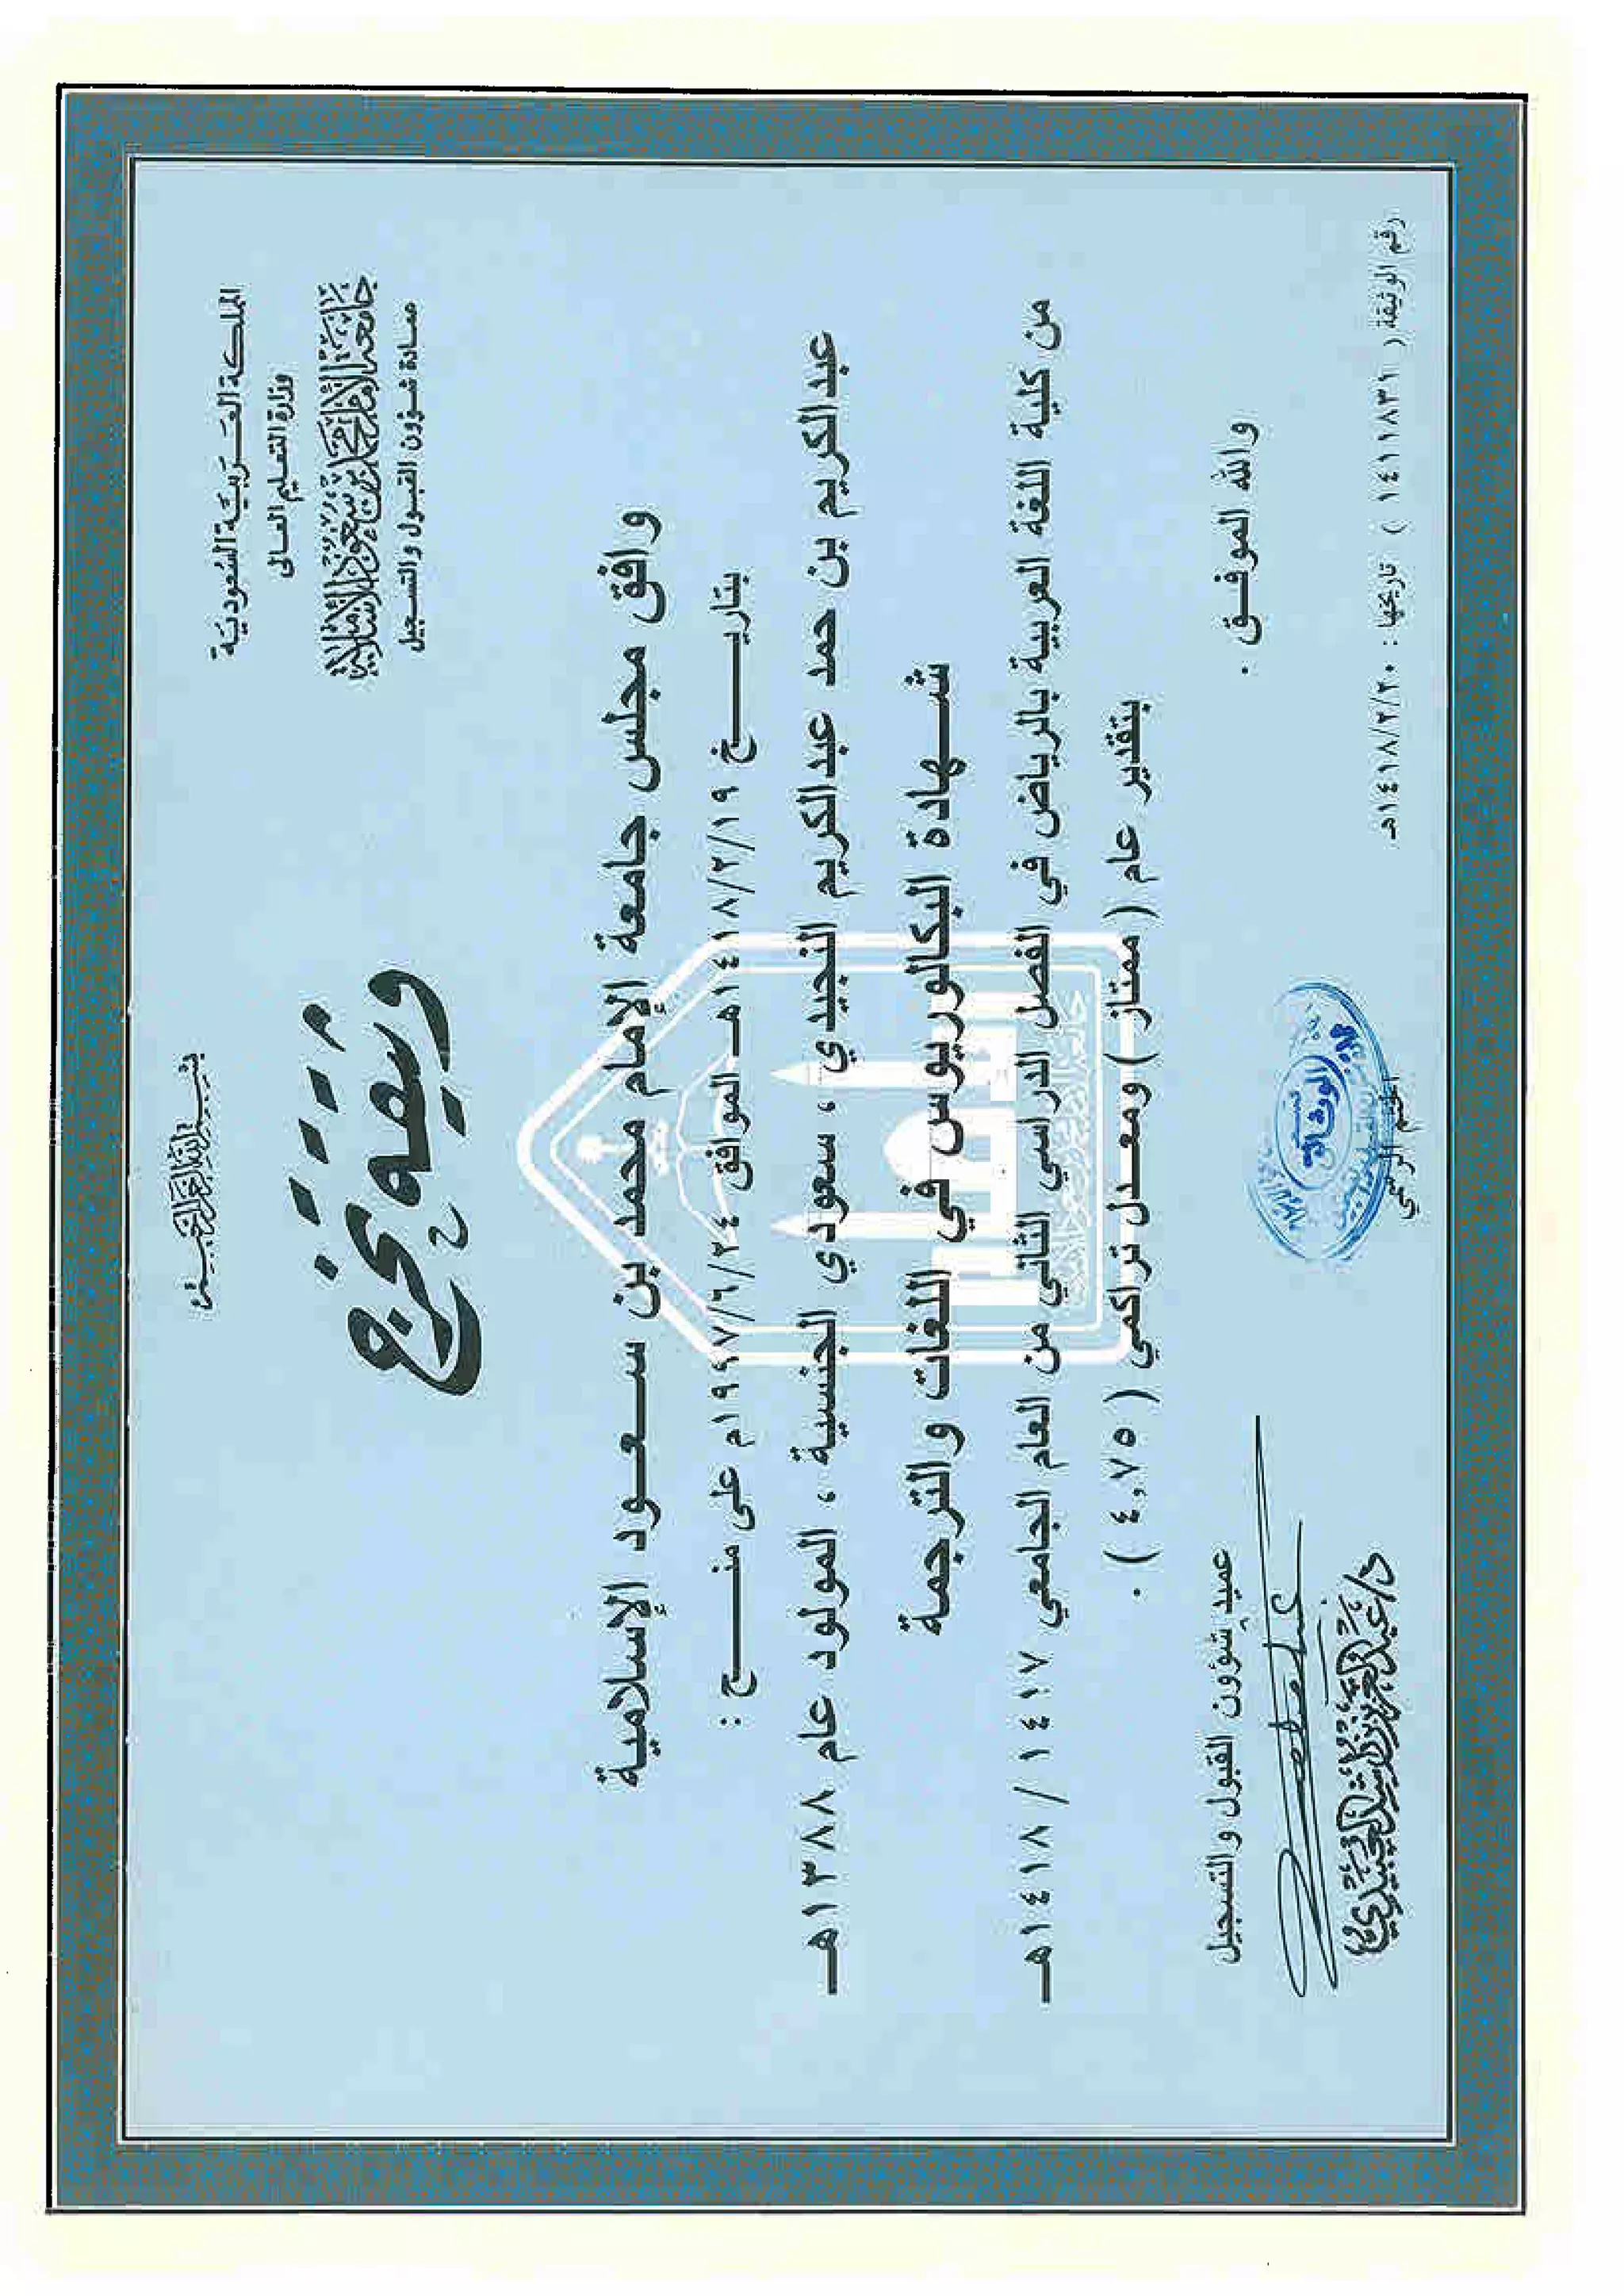 بسم الله الرحمن الرحيم
المملكة العربية السعودية
وزارة التعليم العالي
جامعة الإمام محمد بن سعود الإسلامية
عمادة شؤون القبول والتسجيل
وثيقة تخرج
وافق مجلس جامعة الإمام محمد بن سعود الإسلامية
بتاريخ ١٤١٨/٢/١٩هـ الموافق ١٩٩٧/٦/٢٤م على منح :
عبدالكريم بن حمد عبدالكريم النجيدي ، سعودي الجنسية ، المولود عام ١٣٨٨هـ
شهادة البكالوريوس في اللغات والترجمة
من كلية اللغة العربية بالرياض في الفصل الدراسي الثاني من العام الجامعي ١٤١٧ / ١٤١٨هـ
بتقدير عام ( ممتاز ) ومعدل تراكمي ( ٤,٧٥ ) .
والله الموفق .
عميد شؤون القبول والتسجيل
الختم الرسمي
رقم الوثيقة ( ١٤١١٨٣١ ) تاريخها : ١٤١٨/٢/٢٠هـ